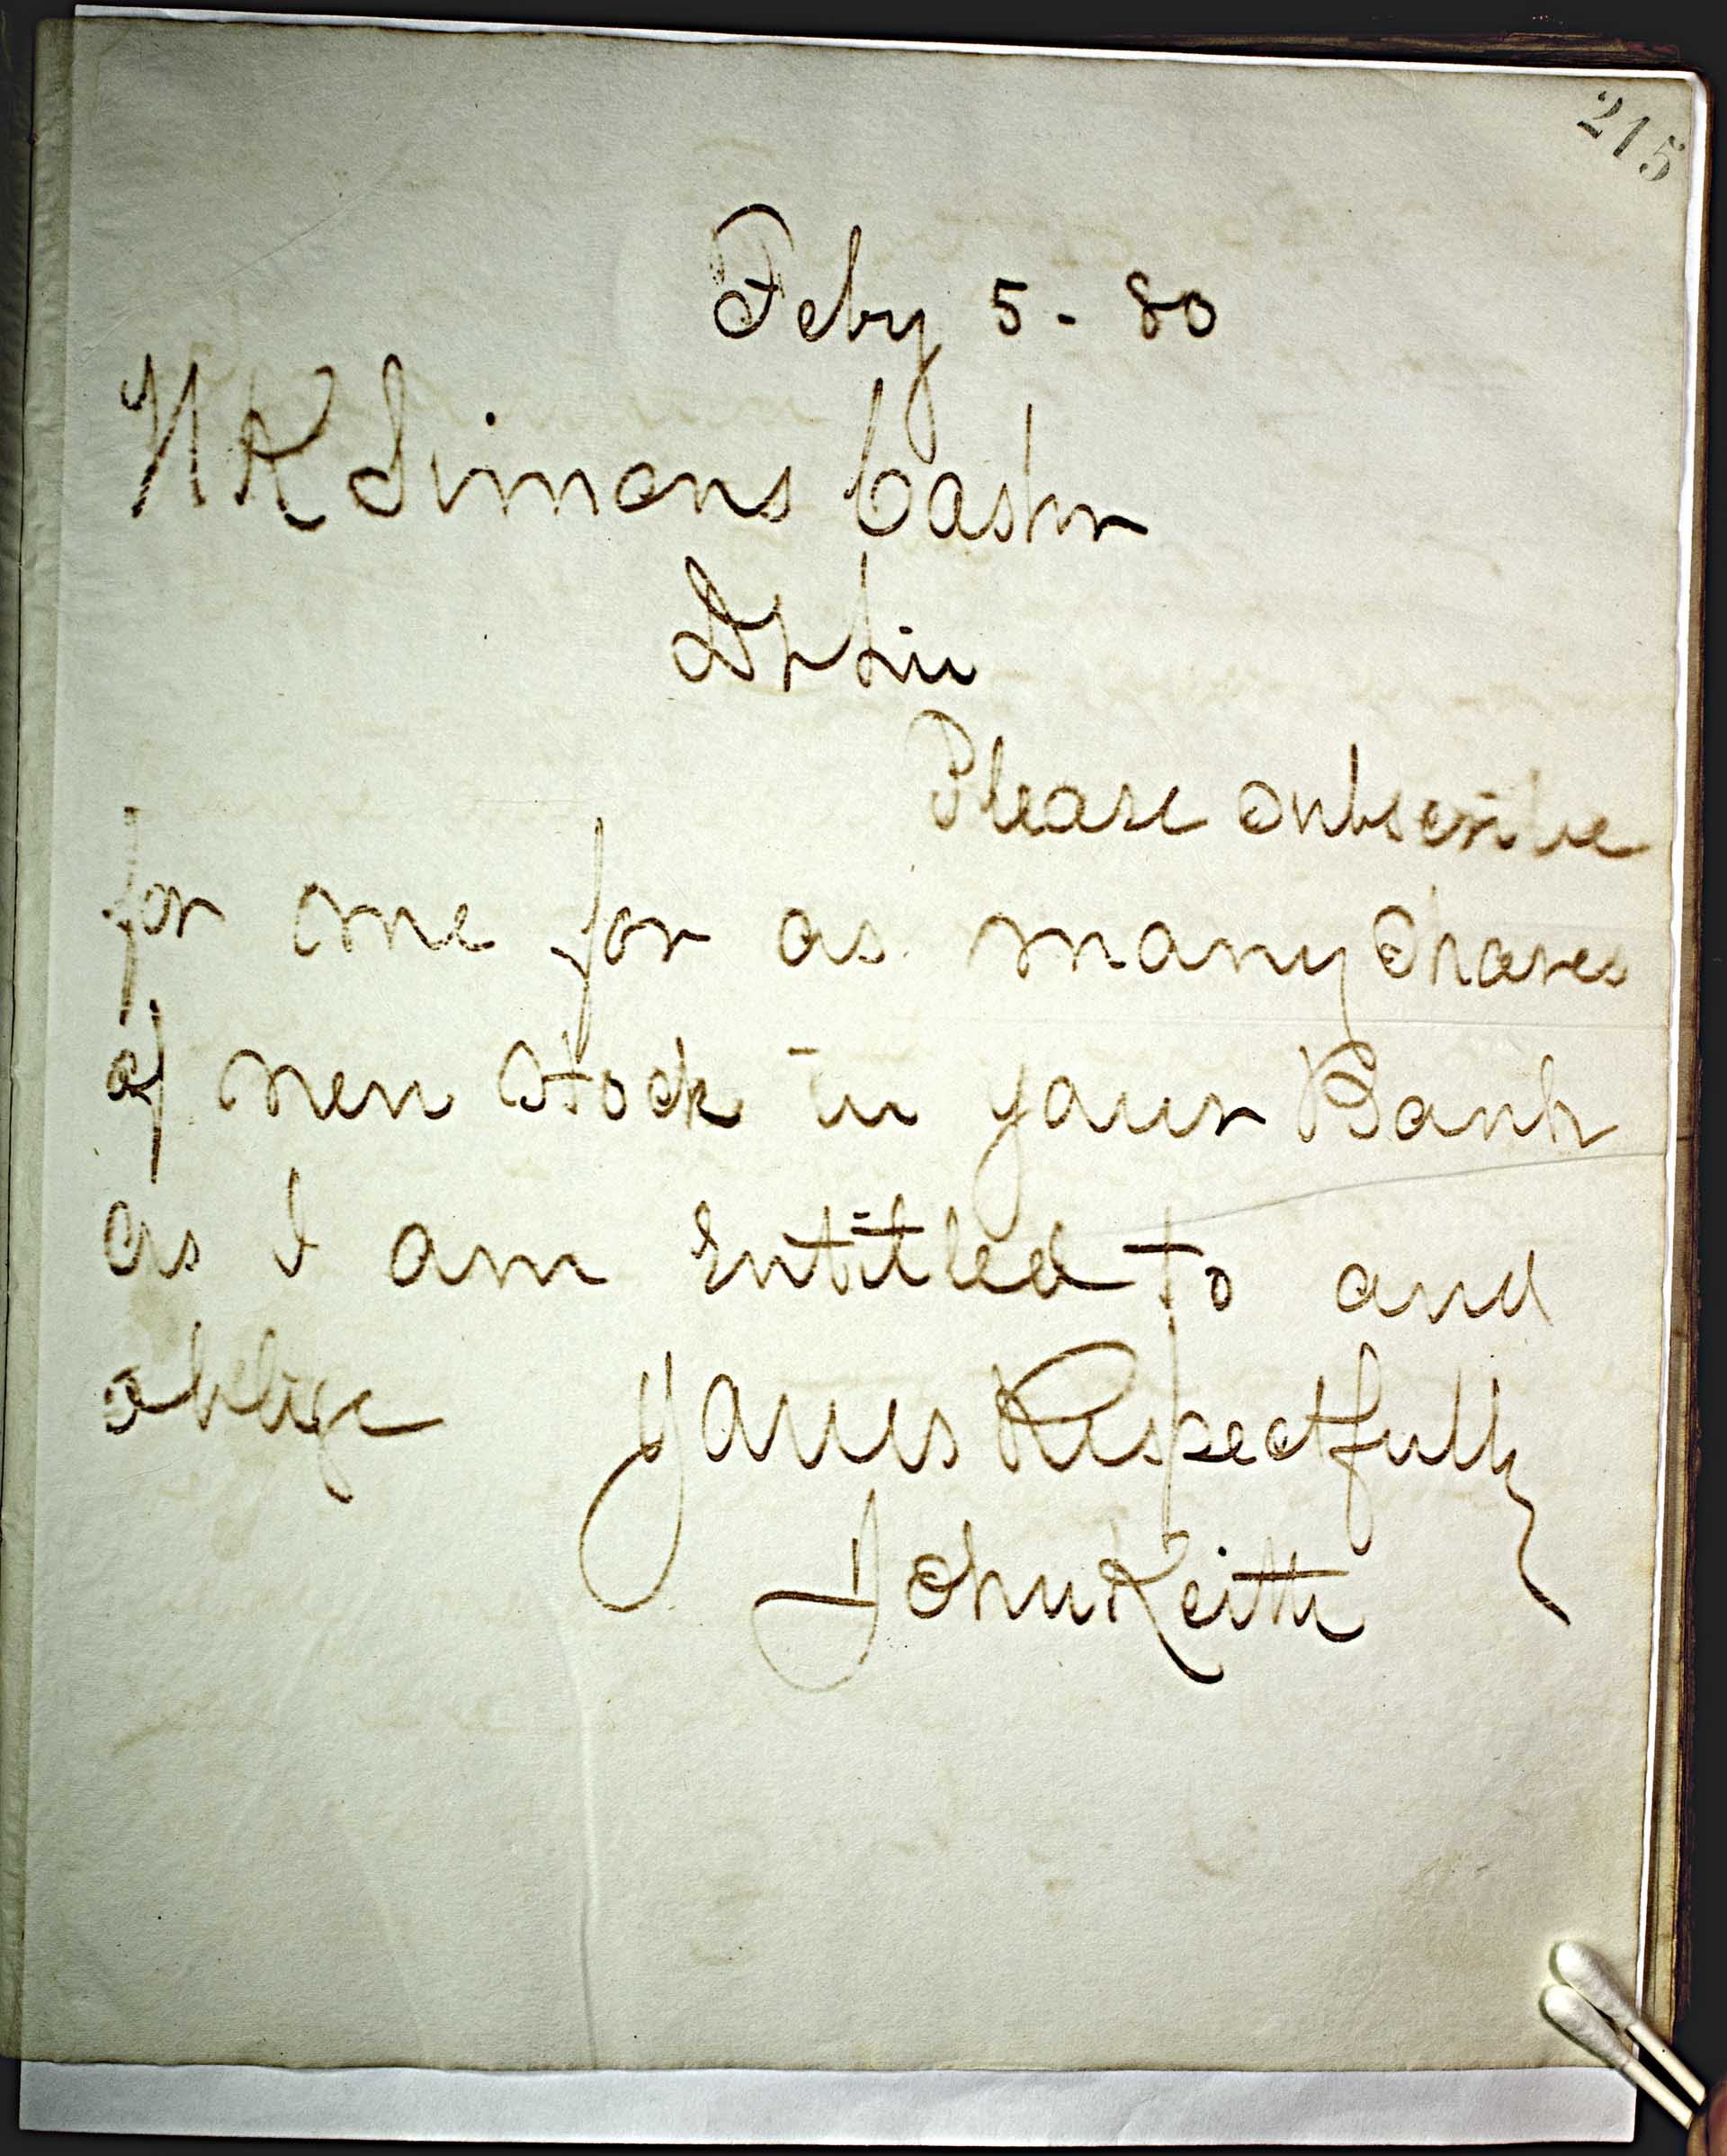 215
Feby 5 - 80
N K Simons Cashr
Dr Sir
Please subscribe
for me for as many Shares
of new stock in your Bank
as I am Entitled to and
oblige Yours Respectfully
John Keith